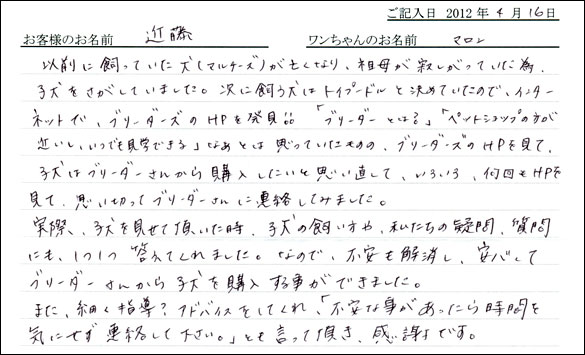 ご記入日 2012年 4月 16日
お客様のお名前 近藤 ワンちゃんのお名前 マロン
以前に飼っていた犬(マルチーズ)が亡くなり、祖母が寂しがっていた為、
子犬をさがしていました。次に飼う犬はトイプードルと決めていたので、インター
ネットで、ブリーダーズのHPを発見!!「ブリーダーとは?」「ペットショップの方が
近いし、いつでも見学できる」なぁとは思っていたものの、ブリーダーズのHPを見て、
子犬はブリーダーさんから購入したいと思い直して、いろいろ、何回もHPを
見て、思い切ってブリーダーさんに連絡してみました。
実際、子犬を見せて頂いた時、子犬の飼い方や、私たちの疑問、質問
にも、1つ1つ答えてくれました。なので、不安も解消し、安心して
ブリーダーさんから子犬を購入する事ができました。
また、細く指導?アドバイスをしてくれ、「不安な事があったら時間を
気にせず連絡して下さい。」とも言って頂き、感謝です。